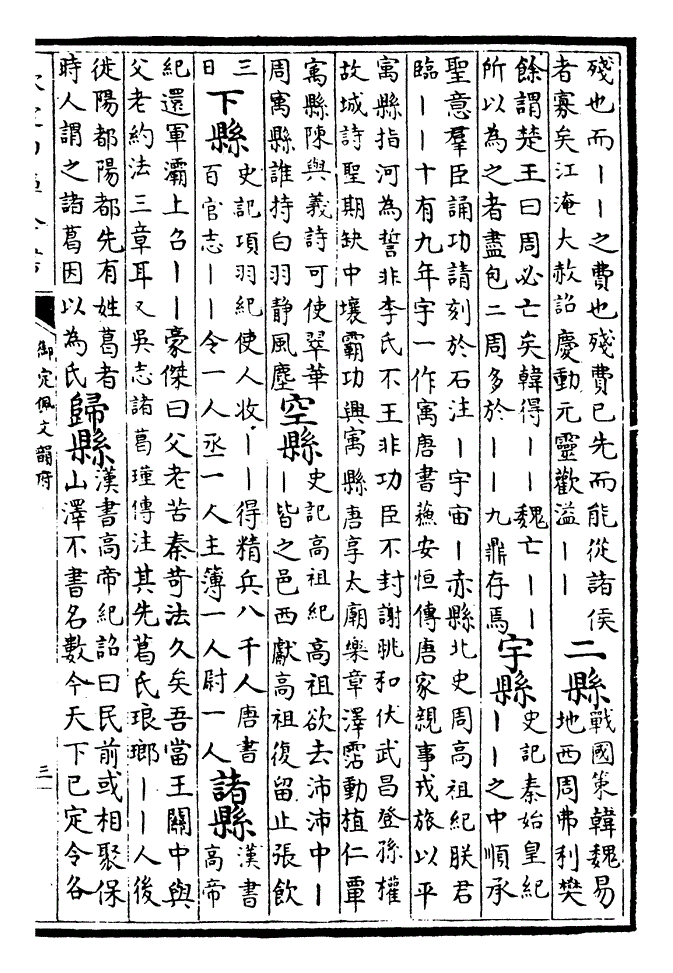 殘也而丨丨之費也殘費已先而能從諸侯
者寡矣江淹大赦詔慶動元靈歡溢丨丨
二縣
戰國策韓魏易
地西周弗利樊
餘謂楚王曰周必亡矣韓得丨丨魏亡丨丨
所以為之者盡包二周多於丨丨九鼎存焉
宇縣
史記秦始皇紀
丨丨之中順承
聖意羣臣誦功請刻於石注丨宇宙丨赤縣北史周高祖紀朕君
臨丨丨十有九年宇一作寓唐書蘇安恒傳唐家親事戎旅以平
寓縣指河為誓非李氏不王非功臣不封謝朓和伏武昌登孫權
故城詩聖期缺中壤霸功興寓縣唐享太廟樂章澤霑動植仁覃
寓縣陳與義詩可使翠華
周寓縣誰持白羽静風塵
空縣
史記高祖紀高祖欲去沛沛中丨
丨皆之邑西獻高祖復留止張飲
三
日
下縣
史記項羽紀使人收丨丨得精兵八千人唐書
百官志丨丨令一人丞一人主簿一人尉一人
諸縣
漢書
高帝
紀還軍灞上召丨丨豪傑曰父老苦秦苛法久矣吾當王關中與
父老約法三章耳又吳志諸葛瑾傳注其先葛氏琅瑯丨丨人後
徙陽都陽都先有姓葛者
時人謂之諸葛因以為氏
歸縣
漢書高帝紀詔曰民前或相聚保
山澤不書名數今天下已定令各
御定佩文韻府
三